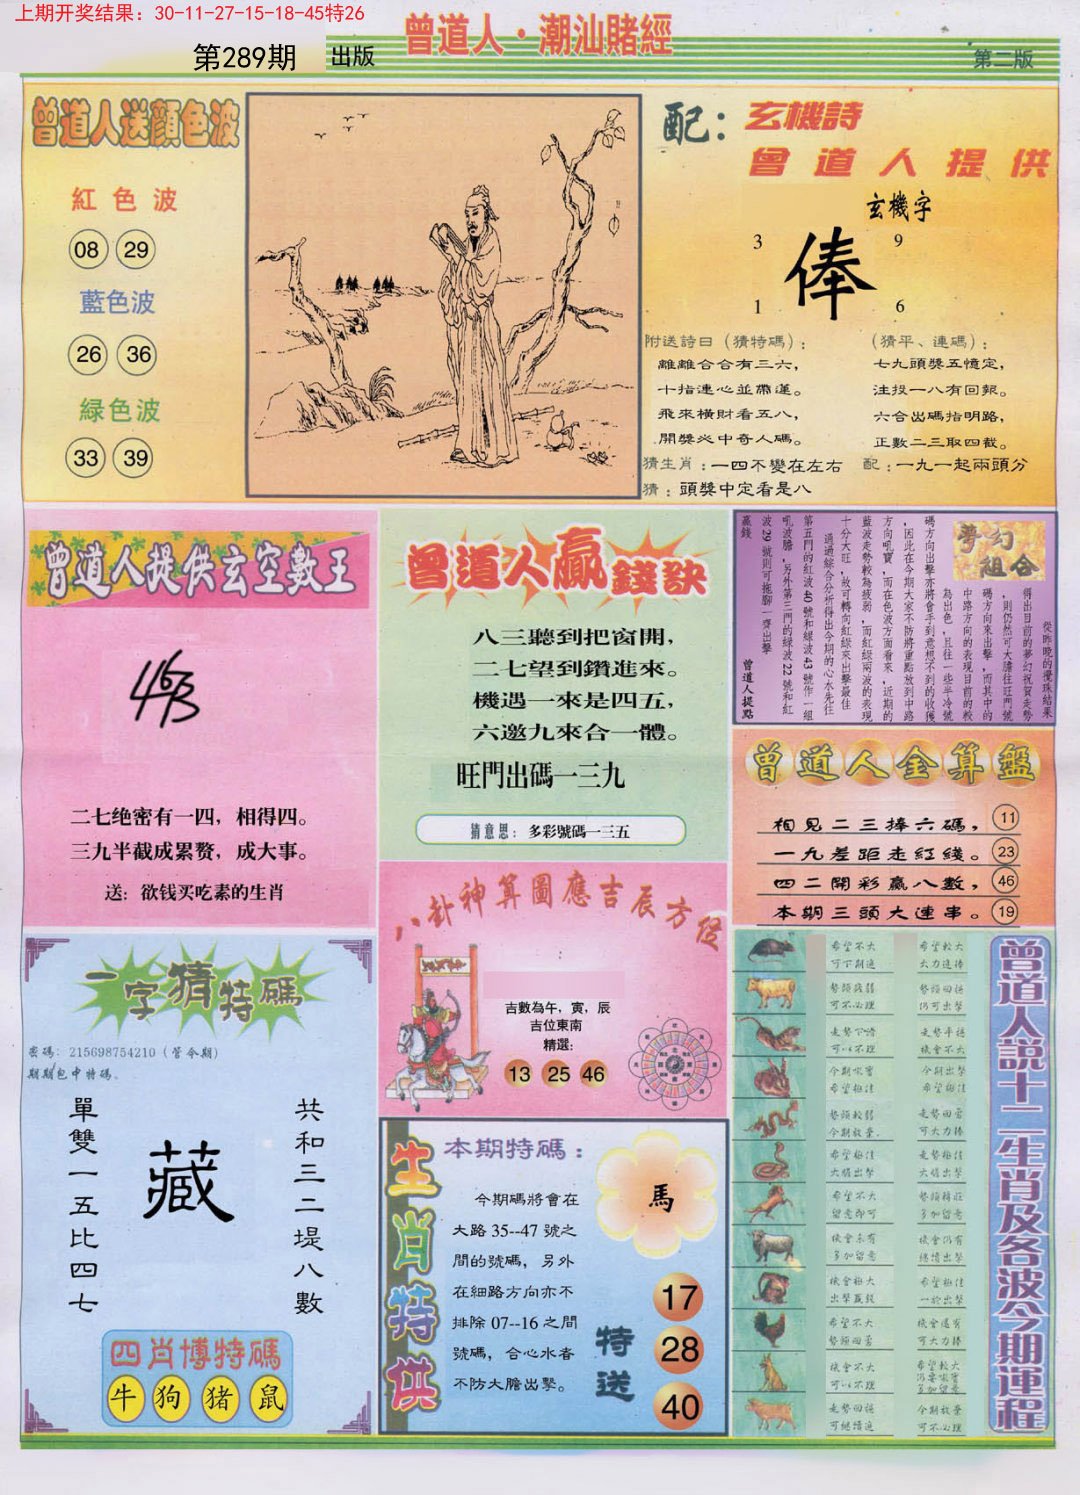 上期开奖结果：30-11-27-15-18-45特26
曾道人·潮汕賭經
第289期 出版
第二版
曾道人送顏色波
紅色波
08 29
藍色波
26 36
緑色波
33 39
配：玄機詩
曾道人提供
玄機字
3 9
俸
1 6
附送詩曰（猜特碼）：
離離合合有三六，
十指連心並帶蓮。
飛來橫財看五八，
開獎必中奇人碼。
（猜平、連碼）：
七九頭獎五憶定，
注投一八有回報。
六合出碼指明路，
正數二三取四截。
猜生肖：一四不變在左右
配：一九一起兩頭分
猜：頭獎中定看是八
曾道人提供玄空數王
463
二七绝密有一四，相得四。
三九半截成累赘，成大事。
送：欲钱买吃素的生肖
曾道人贏錢訣
八三聽到把窗開，
二七望到鑽進來。
機遇一來是四五，
六邀九來合一體。
旺門出碼一三九
猜意思：多彩號碼一三五
夢幻組合
從昨晚的攪珠結果
得出目前的夢幻祝賀走勢
，則仍然可大膽往旺門號
碼方向來出擊，而其中的
中路方向的表現目前的較
為出色，且往一些半冷號
碼方向出擊亦將會手到意想不到的收獲
，因此在今期大家不防將重點放到中路
方向吼寶，而在色波方面看來，近期的
藍波走勢較為疲弱，而紅綠兩波的表現
十分大旺，故可轉向紅綠來出擊最佳
通過綜合分析得出今期的心水先往
第五門的紅波40號和綠波43號作一組
吼波膽，另外第三門的綠波22號和紅
波29號則可拖腳一齊出擊
贏錢
曾道人提點
曾道人全算盤
相見二三捧六碼， 11
一九差距走紅綫。 23
四二開彩贏八數， 46
本期三頭大連串。 19
八卦神算圖應吉辰方位
吉數為午，寅，辰
吉位東南
精選：
13 25 46
一字猜特碼
密碼：215698754210（管今期）
期期包中特碼、
單雙一五比四七
藏
共和三二堤八數
四肖博特碼
牛 狗 猪 鼠
生肖特供
本期特碼：
今期碼將會在
大路35--47號之
間的號碼，另外
在細路方向亦不
排除07--16之間
號碼，合心水者
不防大膽出擊。
馬
特送
17
28
40
曾道人說十二生肖及各波今期運程
希望不大
可下期進
希望較大
大力進捧
勢頭疲弱
可不必理
勢頭回穩
仍可出擊
走勢平穩
機會不大
今期吼實
希望極佳
今期出擊
希望極佳
勢頭較弱
今期放棄.
走勢回雷
可大力捧
希望極佳
大膽出擊
走勢極佳
大膽出擊
希望不大
留意即可
多加留意
機會未有
多加留意
機會仍有
繼續出擊
機會極大
希望極佳
希望不大
機會還有
可大力捧
機會不大
希望較大
走勢回穩
可繼續進
今期放棄
可不必理